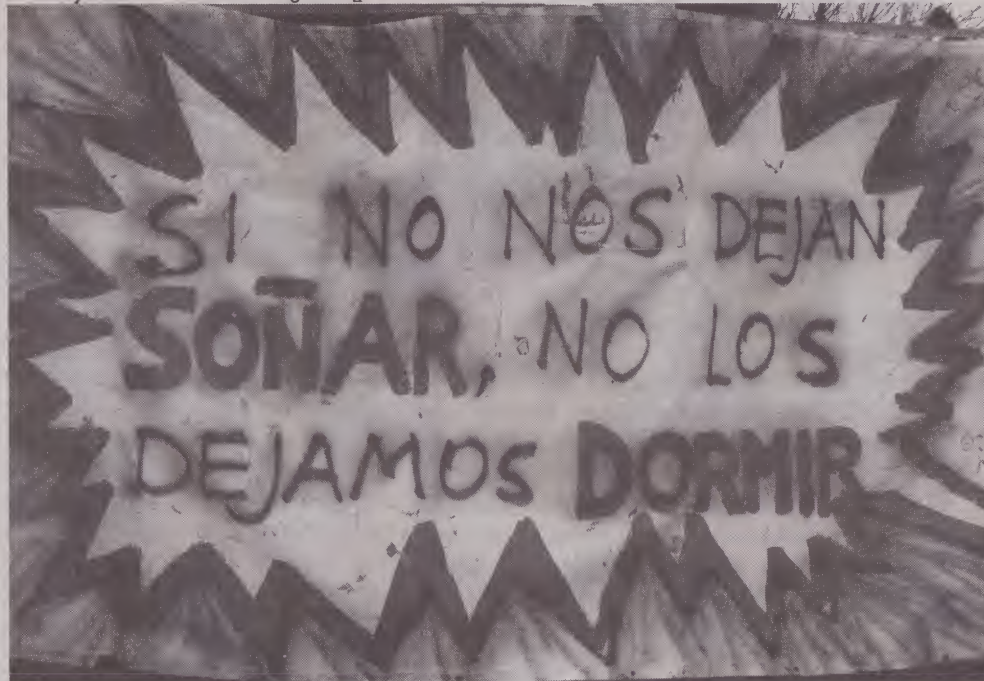 SI NO NOS DEJAN
SOÑAR, NO LOS
DEJAMOS DORMIR